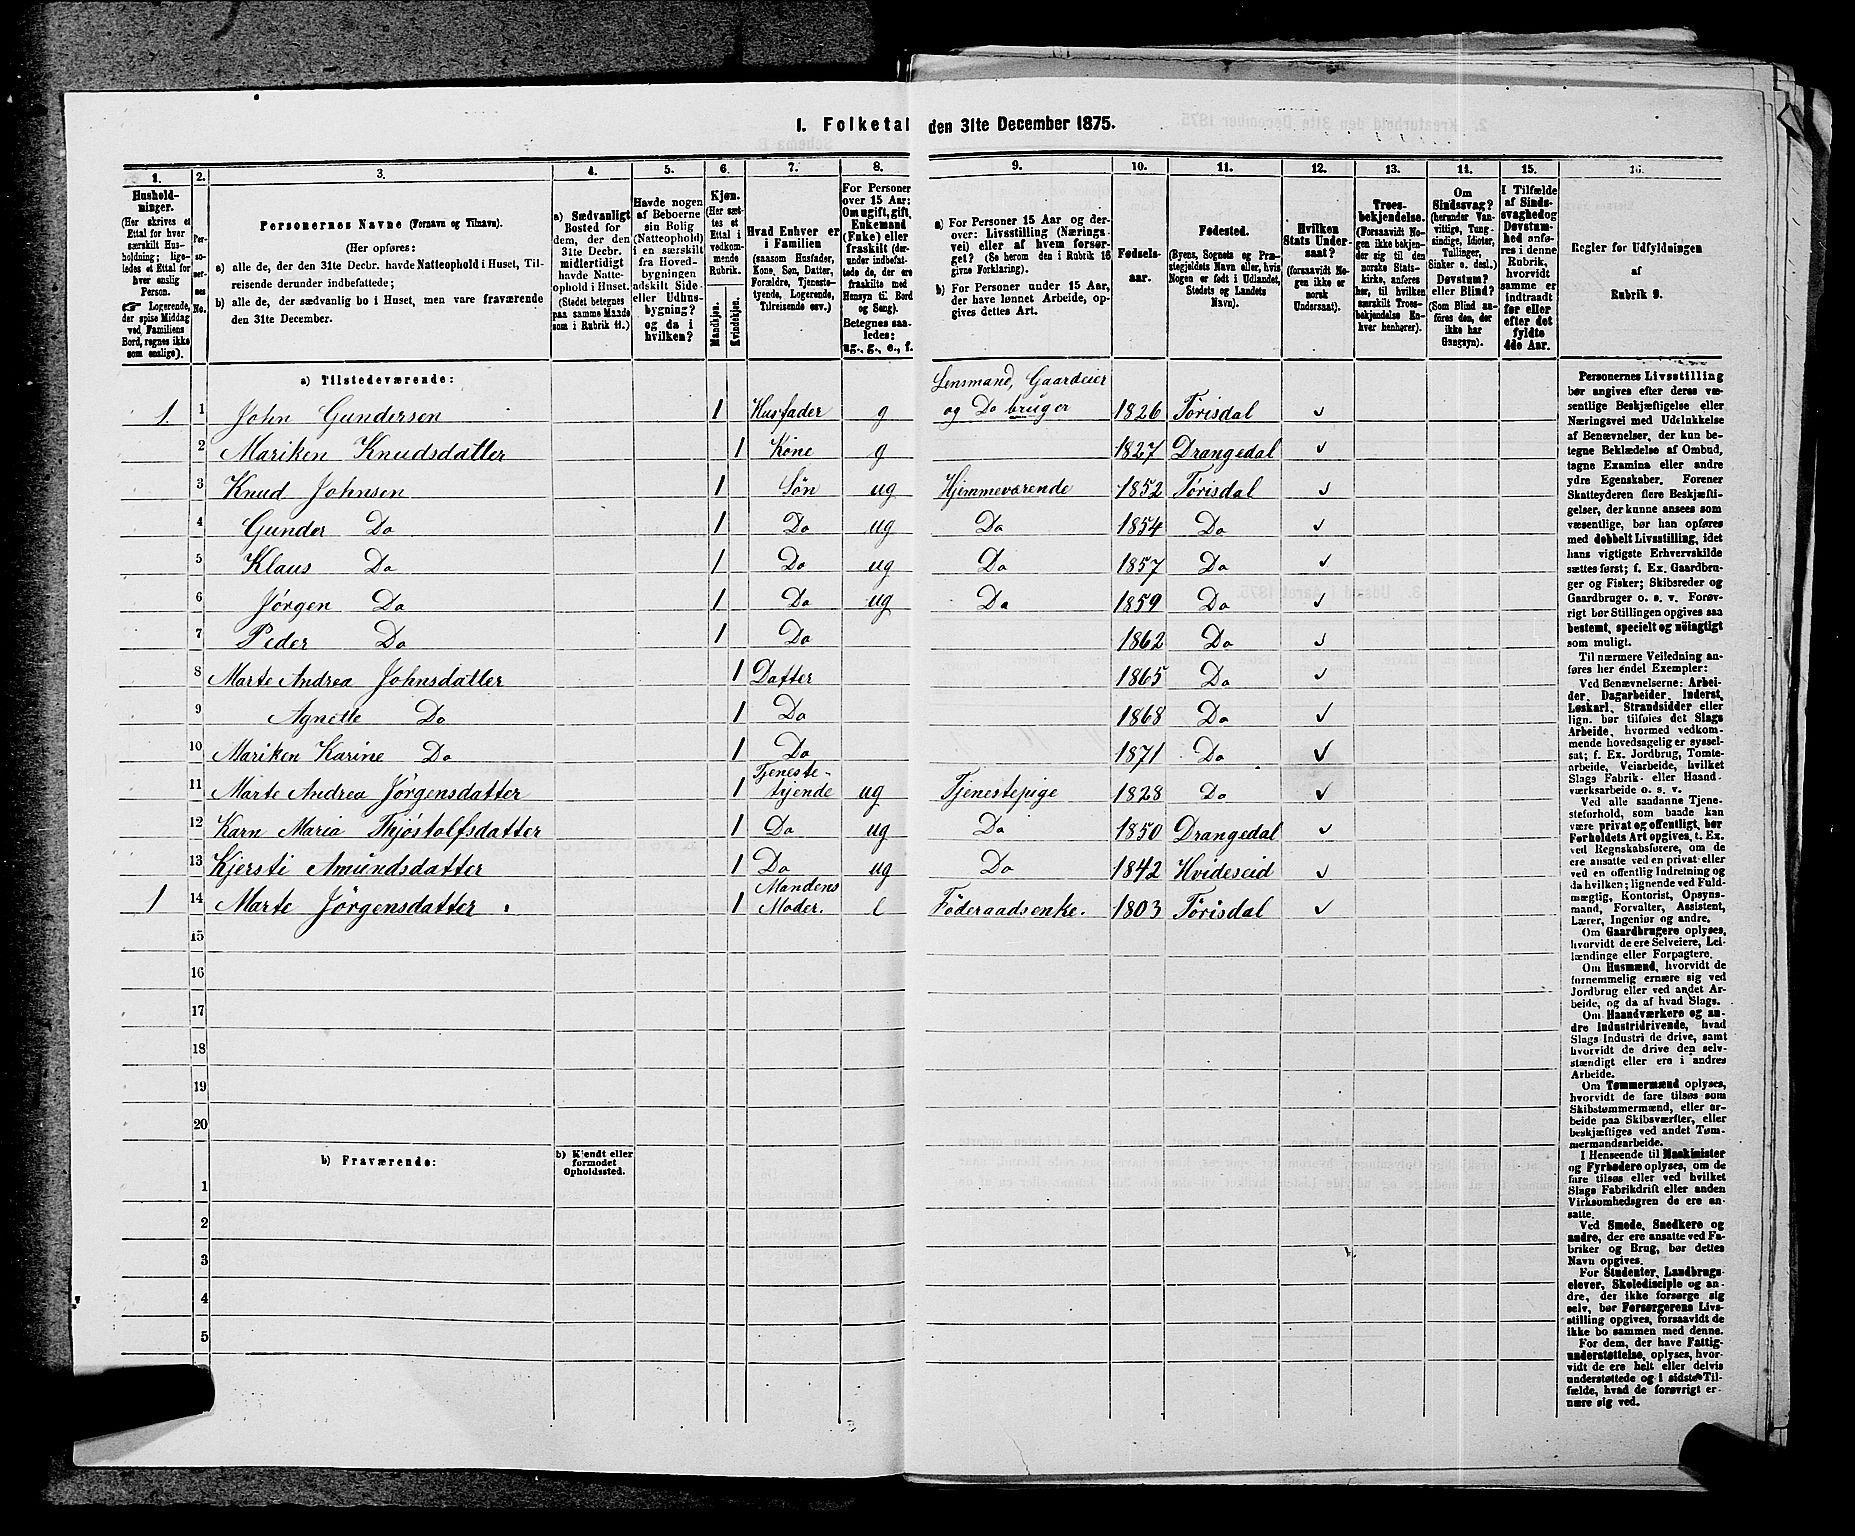 1. Folketal den 31te December 1875.
1. 2. 3. 4. 5. 6. 7. 8. 9. 10. 11. 12. 13. 14. 15. 16.
Hushold-
ninger.
(Her skrives et
Ettal for hver
særskilt Hus-
holdning; lige-
ledes et Ettal for
hver enslig
Person.
☞ Logerende,
der spise Middag
ved Familiens
Bord, regnes ikke
som enslige).
Per-
so-
ner-
nes
No.
Personernes Navne (Fornavn og Tilnavn).
(Her opføres:
a) alle de, der den 31te Decbr. havde Natteophold i Huset, Til-
reisende derunder indbefattede;
b) alle de, der sædvanlig bo i Huset, men vare fraværende
den 31te December.
a) Sædvanligt
Bosted for
dem, der den
31te Decbr.
midlertidigt
havde Natte-
ophold i Huset.
(Stedet betegnes
paa samme Maade
som i Rubrik 11.)
Havde nogen
af Beboerne
sin Bolig
(Natteophold)
i en særskilt
fra Hoved-
bygningen
adskilt Side-
eller Udhus-
bygning?
og da i
hvilken?
Kjøn.
(Her sæt-
tes et
Ettal i
vedkom-
mende
Rubrik.
Mandkjøn.
Kvindekjøn.
Hvad Enhver er
i Familien
(saasom Husfader,
Kone, Søn, Datter,
Forældre, Tjeneste-
tyende, Logerende,
Tilreisende osv.)
For Personer
over 15 Aar:
Om ugift, gift,
Enkemand
(Enke) eller
fraskilt der-
under indbefat-
tede de, der ere
fraskilte med
Hensyn til Bord
og Seng).
Betegnes saa-
ledes:
ug., g., e., f.
a) For Personer 15 Aar og der-
over: Livsstilling (Nærings-
vei) eller af hvem forsør-
get? (Se herom den i Rubrik 16
givne Forklaring).
b) For Personer under 15 Aar,
der have lønnet Arbeide, op-
gives dettes Art.
Fødsels-
aar.
Fødested.
(Byens, Sognets og Præ-
stegjeldets Navn eller, hvis
Nogen er født i Udlandet,
Stedets og Landets
Navn).
Hvilken
Stats Under-
saat?
(forsaavidt No-
gen ikke er
norsk
Undersaat).
Troes-
bekjendelse.
(Forsaavidt No-
gen ikke bekjen-
der sig til den
norske Stats-
kirke, anføres
her, til hvilken
særskilt Troes-
bekjendelse En-
hver henhører).
Om
Sindssvag?
(herunder Van-
vittige, Tung-
sindige, Idioter,
Tullinger,
Sinker o. desl.)
Døvstum?
eller Blind?
(Som Blind an-
føres den, der
ikke har
Gangsyn).
I Tilfælde
af Sinds-
svaghed og
Døvstum-
hed anfø-
res i denne
Rubrik,
hvorvidt
samme er
indtraadt
før eller
efter det
fyldte
4de Aar.
Regler for Udfyldningen
af
Rubrik 9.
a) Tilstedeværende:
Lensmand, Gaardeier
1. 1 John Gundersen 1 Husfader g og Do bruger 1826 Tørisdal ✓
2 Mariken Knudsdatter 1 Kone g 1827 Drangedal ✓
3 Knud Johnsen 1 Søn ug Hjemmeværende 1852 Tørisdal ✓
4 Gunder Do 1 Do ug Do 1854 Do ✓
5 Klaus Do 1 Do ug Do 1857 Do ✓
6 Jørgen Do 1 Do ug Do 1859 Do ✓
7 Peder Do 1 Do 1862 Do ✓
8 Marte Andrea Johnsdatter 1 Datter 1865 Do ✓
9 Agnette Do 1 Do 1868 Do ✓
10 Mariken Karine Do 1 Do 1871 Do ✓
Tjeneste-
11 Marte Andrea Jørgensdatter 1 tyende ug Tjenestepige 1828 Do ✓
12 Karn Maria Thjøstolfsdatter 1 Do ug Do 1850 Drangedal ✓
13 Kjersti Amundsdatter 1 Do ug Do 1842 Hvideseid ✓
Mandens
1 14 Marte Jørgensdatter 1 Moder. e Føderaadsenke. 1803 Tørisdal ✓
15
16
17
18
19
20
b) Fraværende:
b) Kjendt eller
formodet
Opholdssted.
1
2
3
4
5
Personernes Livsstilling
bør angives efter deres væ-
sentlige Beskjæftigelse eller
Næringsvei med Udelukkelse
af Benævnelser, der kun be-
tegne Beklædelse af Ombud,
tagne Examina eller andre
ydre Egenskaber. Forener
Skatteyderen flere Beskjæfti-
gelser, der kunne ansees som
væsentlige, bør han opføres
med dobbelt Livsstilling, idet
hans vigtigste Erhvervskilde
sættes først; f. Ex. Gaardbru-
ger og Fisker; Skibsreder og
Gaardbruger o. s. v. Forøv-
rigt bør Stillingen opgives saa
bestemt, specielt og nøiagtigt
som muligt.
Til nærmere Veiledning an-
føres her endel Exempler:
Ved Benævnelserne: Arbei-
der, Dagarbeider, Inderst,
Løskarl, Strandsidder eller
lign. bør tilføies det Slags
Arbeide, hvormed vedkom-
mende hovedsagelig er syssel-
sat; f. Ex. Jordbrug, Tomte-
arbeide, Veiarbeide, hvilket
Slags Fabrik- eller Haand-
værksarbeide o. s. v.
Ved alle saadanne Tjene-
steforhold, som baade kan
være privat og offentligt, bør
Forholdets Art opgives, t. Ex.
ved Regnskabsførere, om de
ere ansatte ved en privat eller
ved en offentlig Indretning og
da hvilken; lignende ved Fuld-
mægtig, Kontorist, Opsyns-
mand, Forvalter, Assistent,
Lærer, Ingeniør og andre.
Om Gaardbrugere oplyses,
hvorvidt de ere Selveiere, Lei-
lændinge eller Forpagtere.
Om Husmænd, hvorvidt de
fornemmelig ernære sig ved
Jordbrug eller ved andet Ar-
beide, og da af hvad Slags.
Om Haandværkere og an-
dre Industridrivende, hvad
Slags Industri de drive, samt
hvorvidt de drive den selv-
stændigt eller ere i andres
Arbeide.
Om Tømmermænd oplyses,
hvorvidt de fare tilsøs som
Skibstømmermænd, eller ar-
beide paa Skibsværfter, eller
beskjæftiges ved andet Tøm-
mermandsarbeide.
I Henseende til Maskinister
og Fyrbødere oplyses, om de
fare tilsøs eller ved hvilket
Slags Fabrikdrift eller anden
Virksomhedsgren de ere an-
satte.
Ved Smede, Snedkere og
andre, der ere ansatte ved Fa-
briker og Brug, bør dettes
Navn opgives.
For Studenter, Landbrugs-
elever, Skoledisciple og an-
dre, der ikke forsørge sig
selv, bør Forsørgerens Livs-
stilling opgives, forsaavidt de
ikke bo sammen med denne.
For dem, der have Fattig-
understøttelse, oplyses, hvor-
vidt de ere helt eller delvis
understøttede og i sidste Til-
fælde, hvad de forøvrigt er-
nære sig ved.